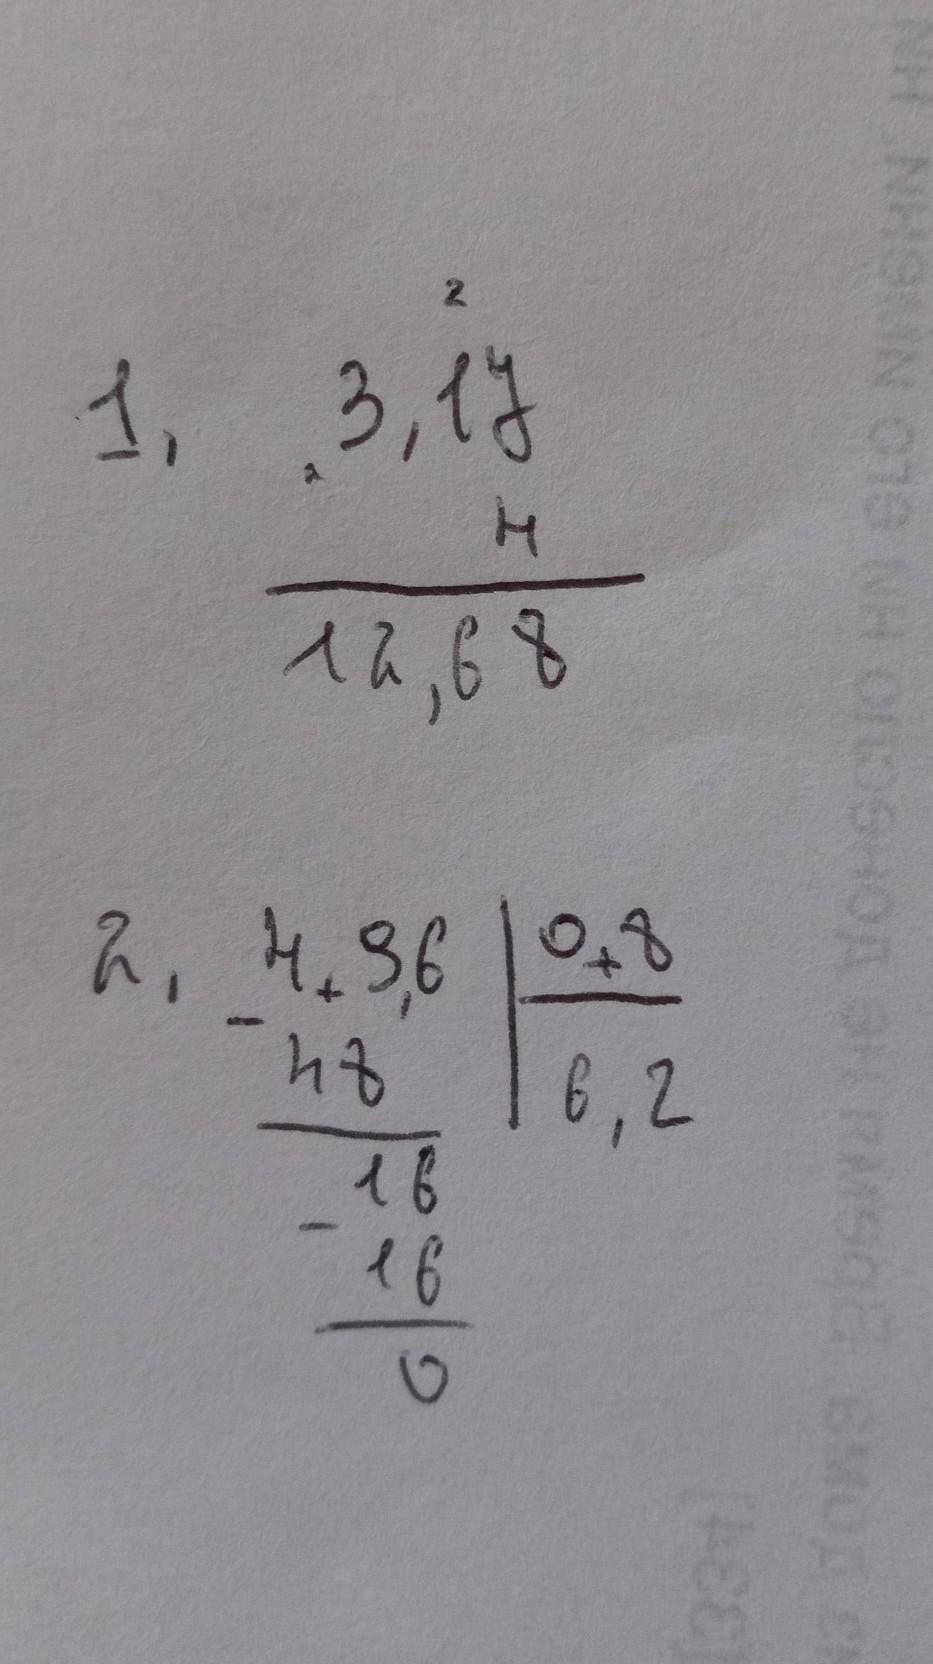 2
1, 3,17
×
4
12,68
2, 4,9,6 | 0,8
- 48 6,2
16
- 16
0